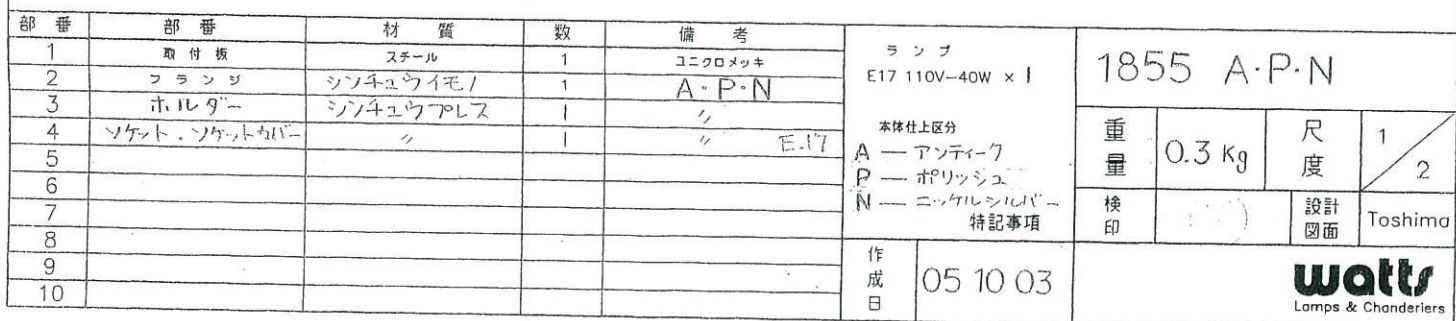 部 番 部 番 材 質 数 備 考
1 取付板 スチール 1 ユニクロメッキ
2 フランジ シンチュウイモノ 1 A・P・N
3 ホルダー シンチュウプレス 1 〃
4 ソケット・ソケットカバー 〃 1 〃 E.17
5
6
7
8
9
10
ランプ
E17 110V-40W × 1
本体仕上区分
A — アンティーク
P — ポリッシュ
N — ニッケルシルバー
特記事項
作成日 05 10 03
1855 A・P・N
重量 0.3 Kg 尺度 1/2
検印 設計図面 Toshima
watts
Lamps & Chanderiers